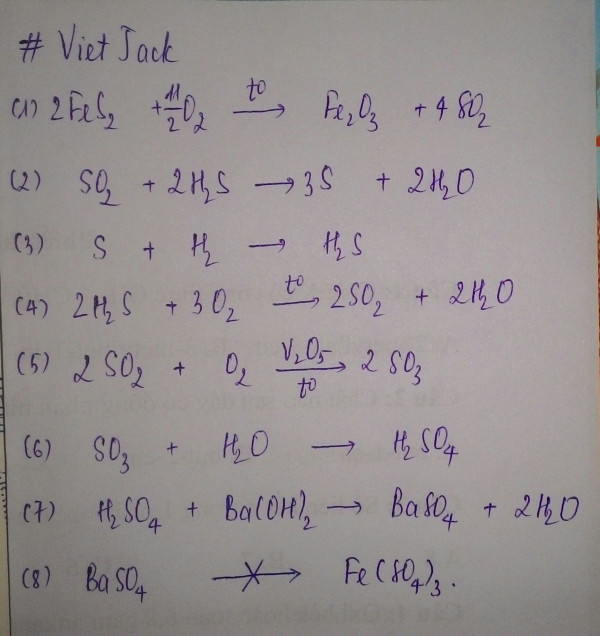 # VietJack
(1) 2FeS₂ + 11/2 O₂ —t⁰→ Fe₂O₃ + 4SO₂
(2) SO₂ + 2H₂S → 3S + 2H₂O
(3) S + H₂ → H₂S
(4) 2H₂S + 3O₂ —t⁰→ 2SO₂ + 2H₂O
(5) 2SO₂ + O₂ —V₂O₅, t⁰→ 2SO₃
(6) SO₃ + H₂O → H₂SO₄
(7) H₂SO₄ + Ba(OH)₂ → BaSO₄ + 2H₂O
(8) BaSO₄ —X→ Fe(SO₄)₃.